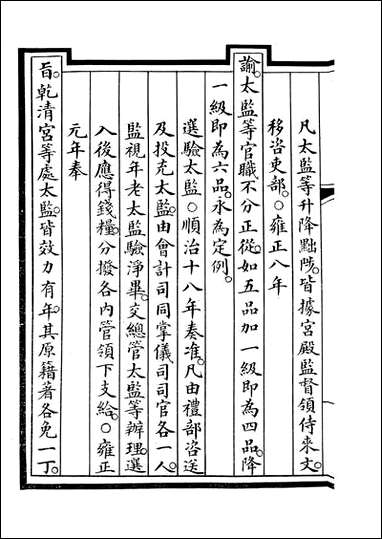 凡太監等升降黜陟。皆據宮殿監督領侍來文。
移咨吏部。○雍正八年
諭。太監等官職不分正從。如五品加一級即為四品。降
一級即為六品。永為定例。
選驗太監○順治十八年奏准。凡由禮部咨送
及投充太監。由會計司同掌儀司司官各一人。
監視年老太監驗淨畢。交總管太監等辦理。選
入後應得錢糧。分撥各內管領下支給。○雍正
元年奉
旨。乾清宮等處太監。皆效力有年。其原籍著各免一丁。